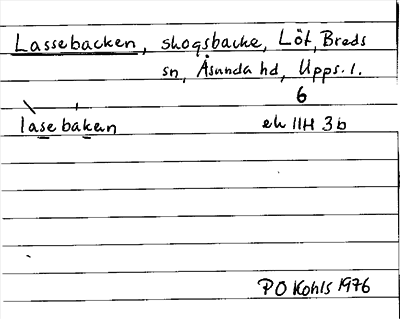 Lassebacken, skogsbacke, Löt, Breds
sn, Åsunda hd, Upps. l.
6
lasebaken
ek 11H 3b
PO Kohls 1976